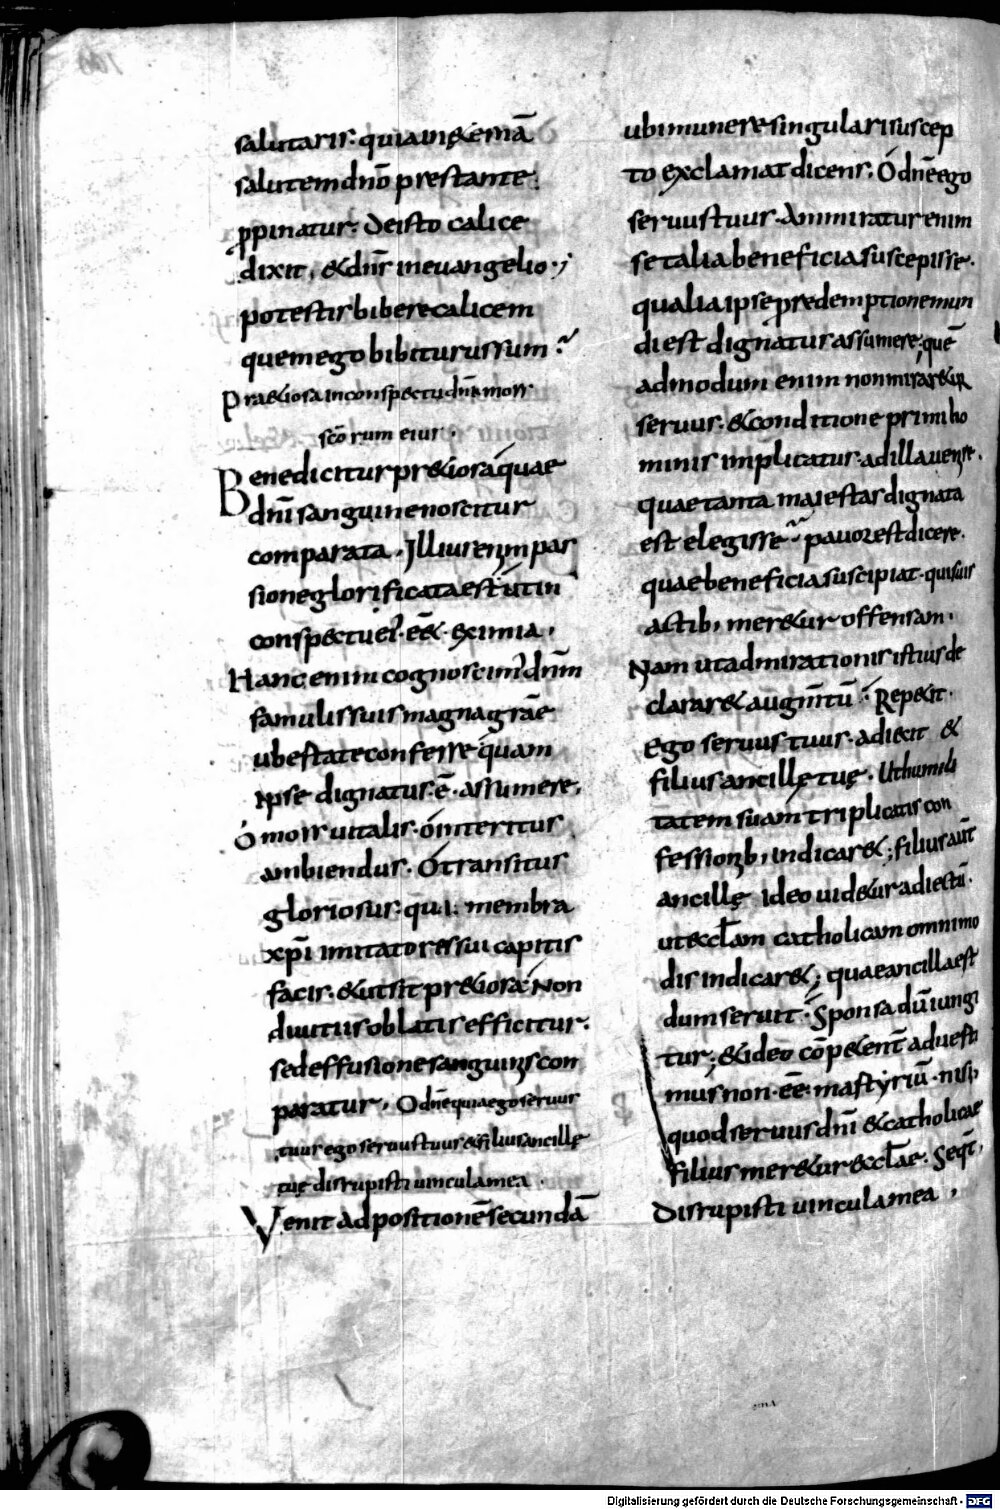 salutaris · quia in & ernā
salutem dnō prestante
ꝓpinatur · De isto calice
dixit, & dns̄ in evangelio ·;
potestis bibere calicem
quem ego bibiturus sum ?
Pra&iosa in conspectu dnī mors
scōrum eius
Benedicitur pr&iosa quae
dnī sanguine noscitur
comparata. Illius enim pas
sione glorificata est ut in
conspectu ei' · eē & eximia,
Hanc enim cognoscim' dnm̄
famulis suis magna grāe
ubestate conferre quam
ipse dignatus · ē · assumere,
O mors vitalis · O interitus
ambiendus · O transitus
gloriosus · qui membra
xpī imitatores sui capitis
facis · & ut sit pr&iosa Non
divitiis oblatis efficitur ·
sed effusione sanguinis con
paratur, O dnē quia ego servus
tuus ego servus tuus & filius ancillę
tuę disrupisti vincula mea ·
Venit ad positionē secundā
ubi munere singulari suscep
to exclamat dicens · O dnē ego
servus tuus · Ammiratur enim
se talia beneficia suscepisse ·
qualia ipse ꝓ redemptione mun
di est dignatus assumere · quē
admodum enim non mirar&ur
servus · & conditione primi ho
minis implicatus · ad illa venire ·
quae tanta maiestas dignata
est elegisse pavor est dicere ·
quae beneficia suscipiat · qui suis
actib; mer&ur offensam ·
Nam ut admirationis istius de
clarar& augm̄tū · Rep&it ·
Ego servus tuus · adiecit &
filius ancillę tuę · Ut humili
tatem suam triplicatis con
fessionib; indicar&; filius aut̄
ancillę ideo vid&ur adiectū ·
ut eccl̄am catholicam omnimo
dis indicar&; quae ancilla est
dum servit · Sponsa dū iungi
tur; & ideo cōp&ent̄ advesti
mus non · eē · martyriū · nisi
quod servus dnī & catholicae
filius mer&ur eccl̄ae · Seqt̄,
Disrupisti vincula mea,
Digitalisierung gefördert durch die Deutsche Forschungsgemeinschaft - DFG